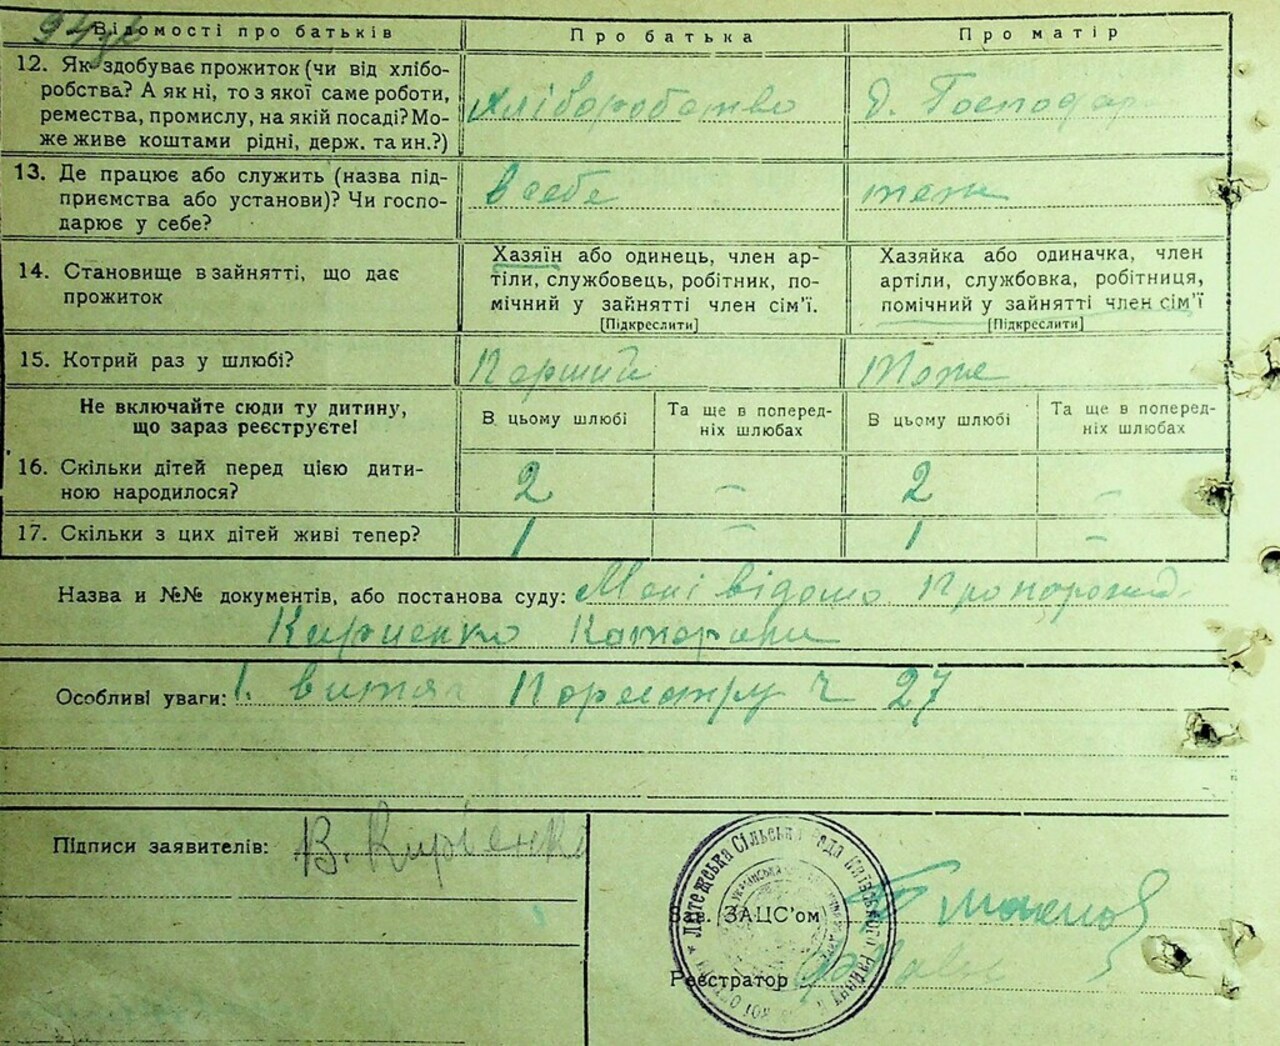 Відомості про батьків
Про батька
Про матір
12. Як здобуває прожиток (чи від хлібо-
робства? А як ні, то з якої саме роботи,
ремества, промислу, на якій посаді? Мо-
же живе коштами рідні, держ. та ин.?)
хліборобство
д. Господар
13. Де працює або служить (назва під-
приємства або установи)? Чи госпо-
дарює у себе?
в себе
теж
14. Становище в зайнятті, що дає
прожиток
Хазяїн або одинець, член ар-
тіли, службовець, робітник, по-
мічний у зайнятті член сім'ї.
[Підкреслити]
Хазяйка або одиначка, член
артіли, службовка, робітниця,
помічний у зайнятті член сім'ї
[Підкреслити]
15. Котрий раз у шлюбі?
Перший
Тоже
Не включайте сюди ту дитину,
що зараз реєструєте!
В цьому шлюбі
Та ще в поперед-
ніх шлюбах
В цьому шлюбі
Та ще в поперед-
ніх шлюбах
16. Скільки дітей перед цією дити-
ною народилося?
2
–
2
–
17. Скільки з цих дітей живі тепер?
1
–
1
–
Назва и №№ документів, або постанова суду: Мені відомо
Кириенко Катерини
Особливі уваги: 1. витяг Пореестру ч 27
Підписи заявителів: В. Кирієнко
Лютежська Сільська Рада Київського Району
Зав. ЗАЦС'ом
Реєстратор